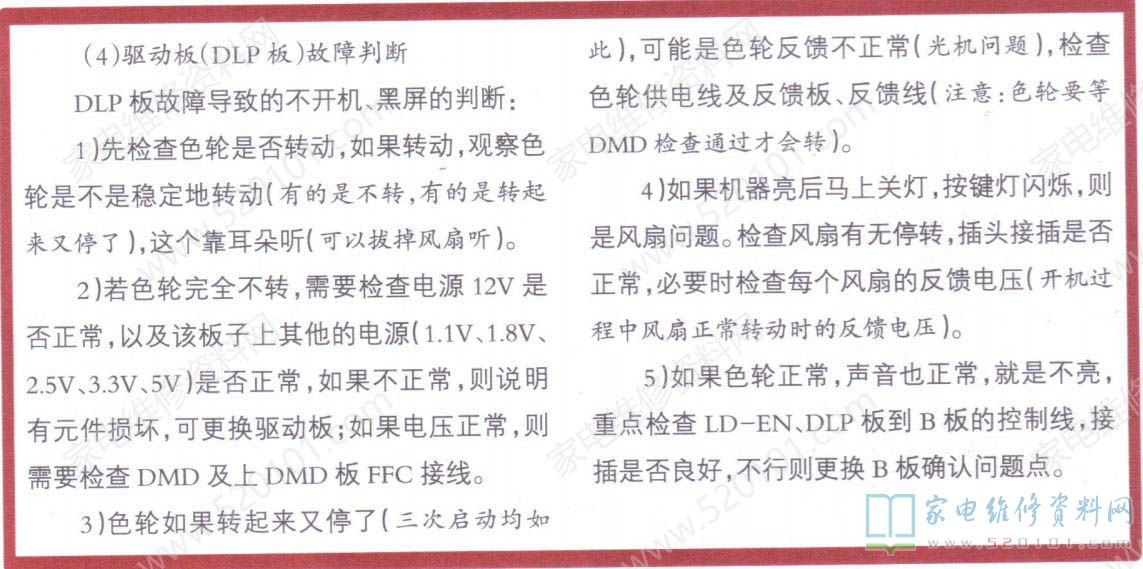 (4)驱动板(DLP 板)故障判断
DLP 板故障导致的不开机、黑屏的判断：
1)先检查色轮是否转动，如果转动，观察色
轮是不是稳定地转动(有的是不转，有的是转起
来又停了)，这个靠耳朵听(可以拔掉风扇听)。
2)若色轮完全不转，需要检查电源 12V 是
否正常，以及该板子上其他的电源(1.1V、1.8V、
2.5V、3.3V、5V)是否正常，如果不正常，则说明
有元件损坏，可更换驱动板；如果电压正常，则
需要检查 DMD 及上 DMD 板 FFC 接线。
3)色轮如果转起来又停了(三次启动均如
此)，可能是色轮反馈不正常(光机问题)，检查
色轮供电线及反馈板、反馈线(注意：色轮要等
DMD 检查通过才会转)。
4)如果机器亮后马上关灯，按键灯闪烁，则
是风扇问题。检查风扇有无停转，插头接插是否
正常，必要时检查每个风扇的反馈电压(开机过
程中风扇正常转动时的反馈电压)。
5)如果色轮正常，声音也正常，就是不亮，
重点检查 LD-EN、DLP 板到 B 板的控制线，接
插是否良好，不行则更换 B 板确认问题点。
家电维修资料网
www.520101.com